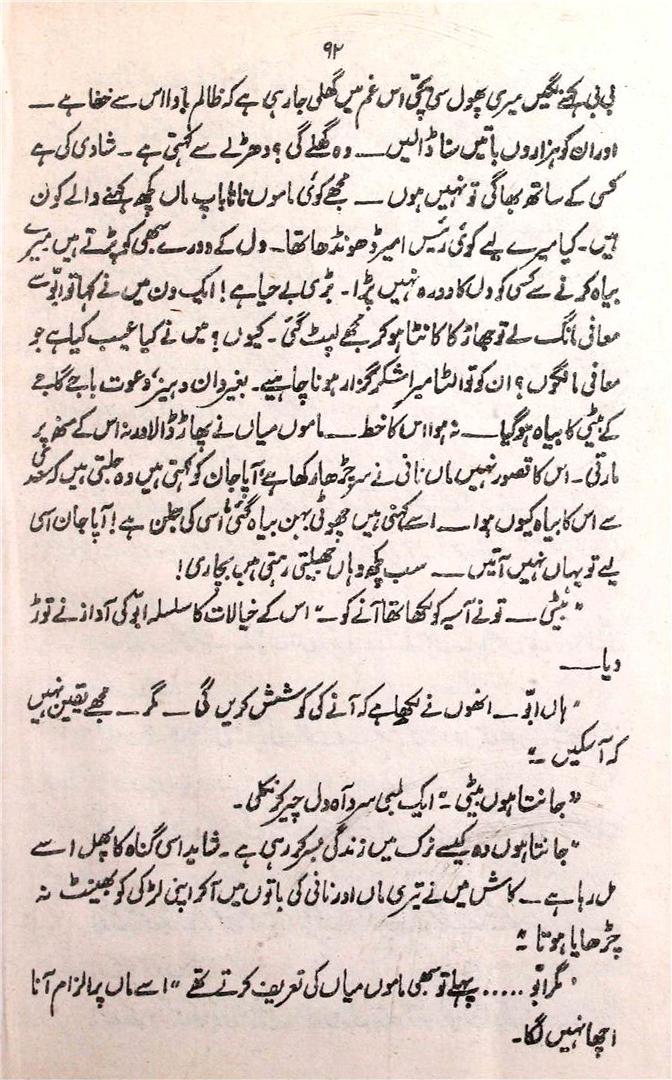 ۹۲
بی بی کہنے لگیں میری پھول سی بچّی اس غم میں گھلی جا رہی ہے کہ ظالم باوا اس سے خفا ہے —
اور ان کو ہزاروں باتیں سنا ڈالیں — وہ گھلے گی؟ دھڑلے سے کہتی ہے - شادی کی ہے
کسی کے ساتھ بھاگی تو نہیں ہوں — مجھے کوئی ماموں نانا باپ ماں کچھ کہنے والے کون
ہیں - کیا میرے لیے کوئی رئیس امیر ڈھونڈھا تھا - دل کے دورے سبھی کو پڑتے ہیں میرے
بیاہ کرنے سے کسی کو دل کا دورہ نہیں پڑا - بڑی بے حیا ہے! ایک دن میں نے کہا تو ابّو سے
معافی مانگ لے تو جھاڑ کا کانٹا ہو کر مجھے لپٹ گئی - کیوں؟ میں نے کیا عیب کیا ہے جو
معافی مانگوں؟ ان کو تو الٹا میرا شکر گزار ہونا چاہیے - بغیر دان دہیز، دعوت باجے گاجے
کے بیٹی کا بیاہ ہو گیا — نہ ہوا اس کا خط — ماموں میاں نے پھاڑ ڈالا ورنہ اس کے منہ پر
مارتی - اس کا قصور نہیں ماں نانی نے سر چڑھا رکھا ہے، آپا جان کو کہتی ہیں وہ جلتی ہیں کہ
سے اس کا بیاہ کیوں ہوا — اسے کہتی ہیں چھوٹی بہن بیاہ گئی اسی کی جلن ہے! آپا جان اسی
لیے تو یہاں نہیں آتیں — سب کچھ وہاں جھیلتی رہتی ہیں بچاری!
"بیٹی — تو نے آسیہ کو لکھا تھا آنے کو -" اس کے خیالات کا سلسلہ ابّو کی آواز نے توڑ
دیا —
"ہاں ابّو — انھوں نے لکھا ہے کہ آنے کی کوشش کریں گی - مگر - مجھے یقین نہیں
کہ آ سکیں -"
"جانتا ہوں بیٹی -" ایک لمبی سرد آہ دل چیر کر نکلی -
"جانتا ہوں وہ کیسے نرک میں زندگی بسر کر رہی ہے - شاید اسی گناہ کا پھل اسے
مل رہا ہے - کاش میں نے تیری ماں اور نانی کی باتوں میں آ کر اپنی لڑکی کو بھینٹ نہ
چڑھایا ہوتا -"
"مگر ابّو ..... پہلے تو سبھی ماموں میاں کی تعریف کرتے تھے" اسے ماں پر الزام آنا
اچھا نہیں لگا -